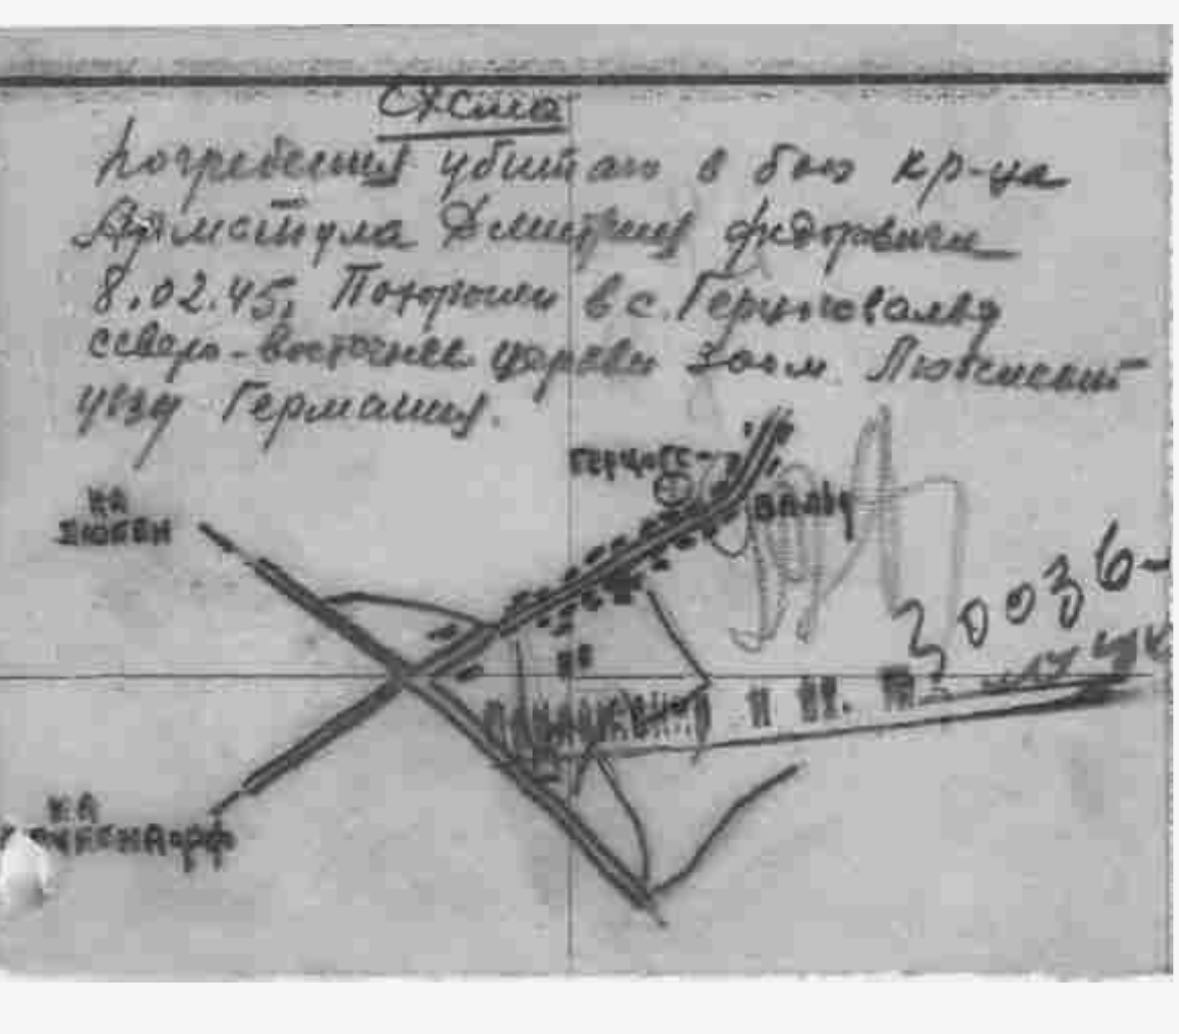 Схема
погребения убитого в бою кр-ца
Дмитрия Федоровича
8.02.45. Похоронен в с. Герцогсвальд
северо-восточнее церкви 300 м. Любенский
уезд Германия.
ГЕРЦОГС-
ВАЛЬД
НА
ЛЮБЕН
НА